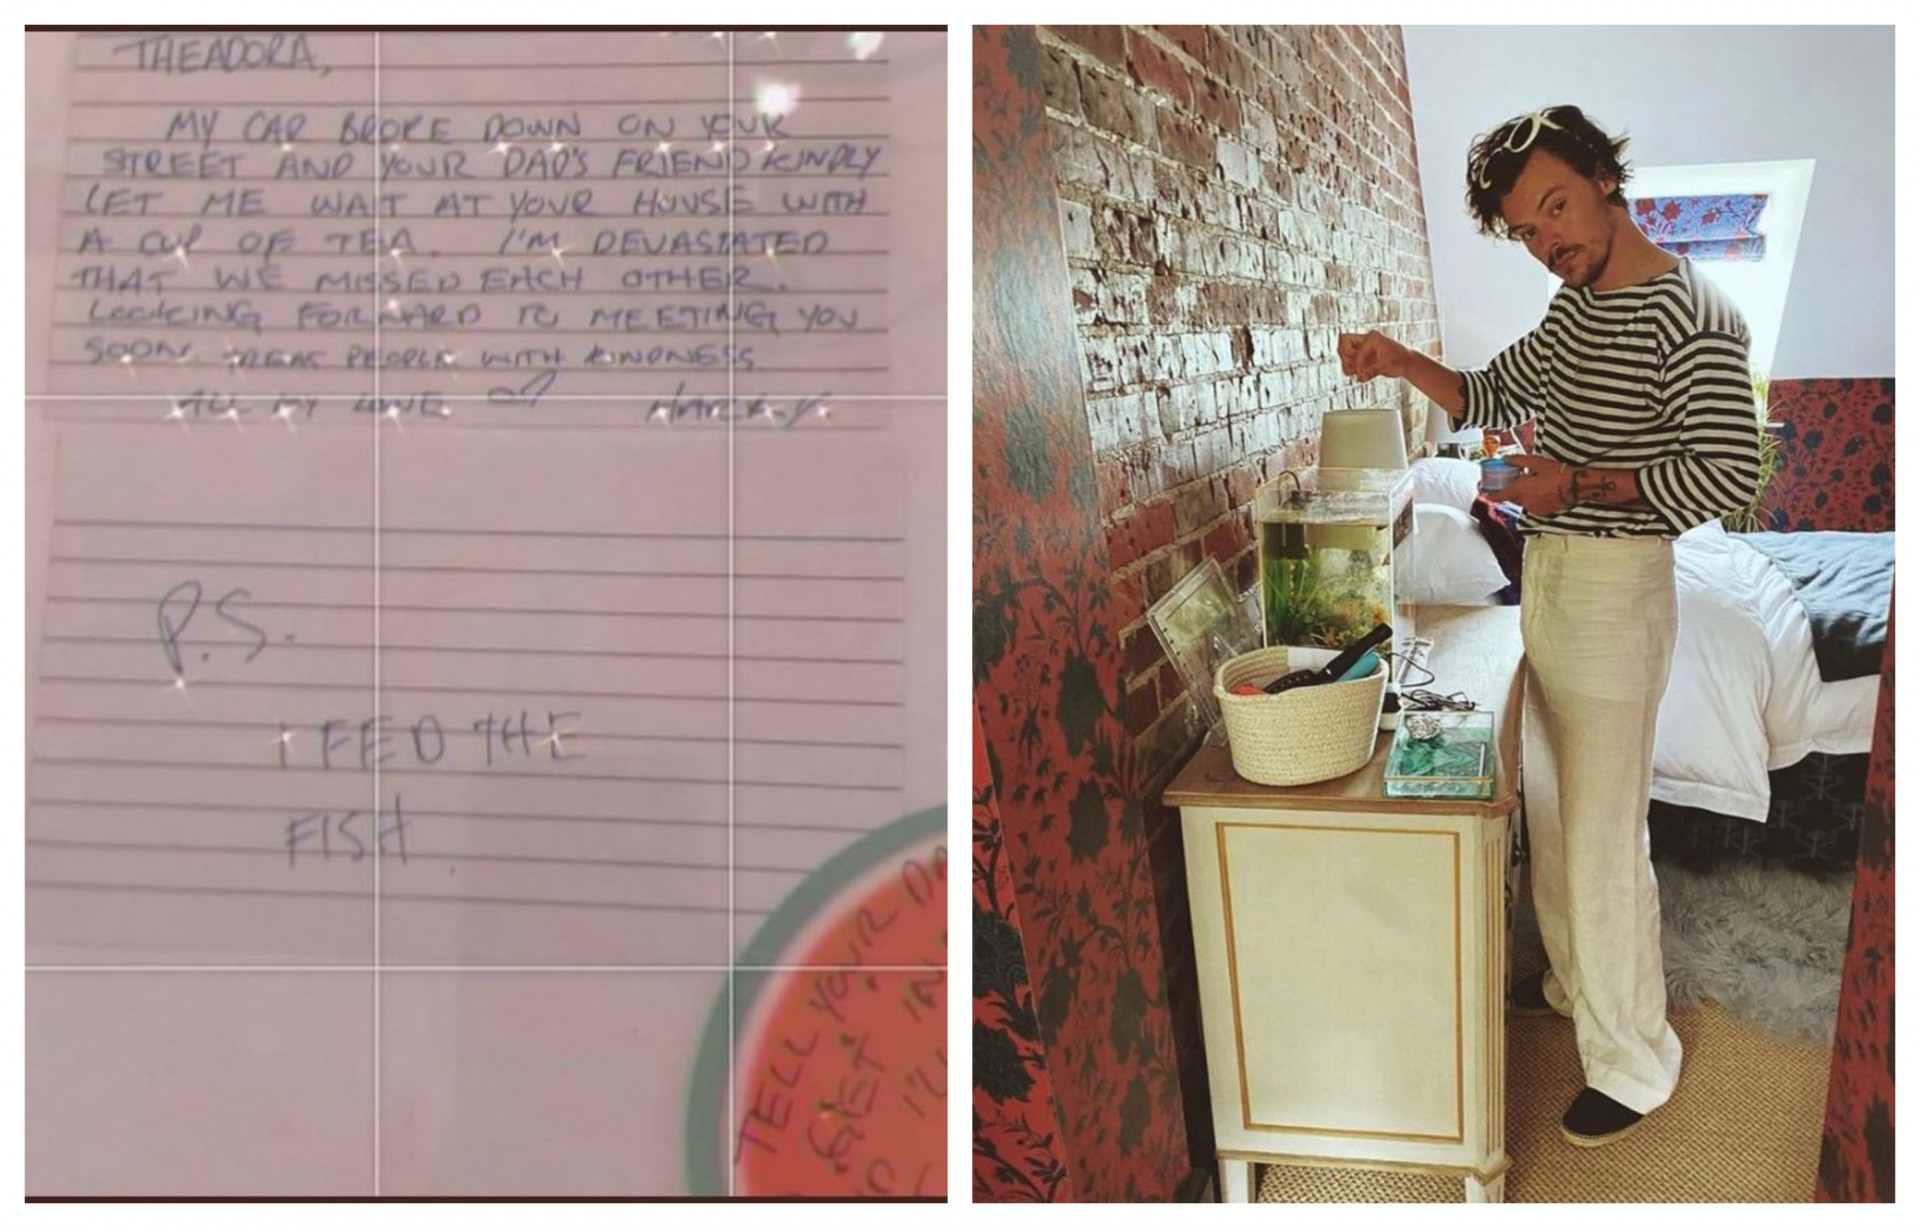 THEADORA,
MY CAR BROKE DOWN ON YOUR
STREET AND YOUR DAD'S FRIEND KINDLY
LET ME WAIT AT YOUR HOUSE WITH
A CUP OF TEA. I'M DEVASTATED
THAT WE MISSED EACH OTHER.
LOOKING FORWARD TO MEETING YOU
SOON. TREAT PEOPLE WITH KINDNESS
ALL MY LOVE ♡ HARRY.
P.S.
I FED THE
FISH.
TELL YOUR
GET
I'LL